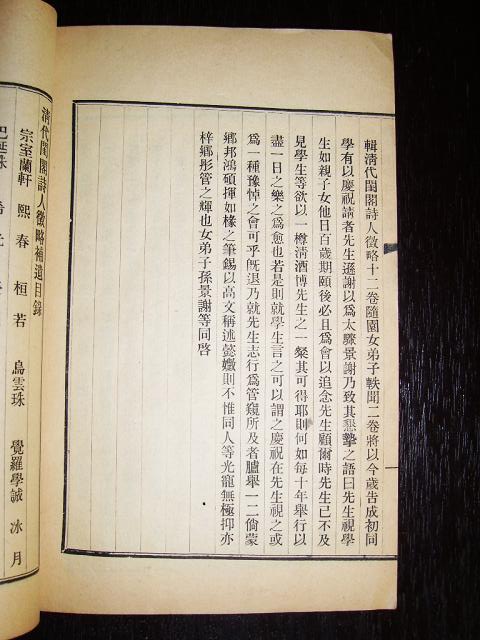 輯清代閨閣詩人徵略十二卷隨園女弟子軼聞二卷將以今歲告成初同
學有以慶祝請者先生遜謝以爲太驟景謝乃致其懇摯之語曰先生視學
生如親子女他日百歲期頤後必且爲會以追念先生顧爾時先生已不及
見學生等欲以一樽清酒博先生之一粲其可得耶則何如每十年舉行以
盡一日之樂之爲愈也若是則就學生言之可以謂之慶祝在先生視之或
爲一種豫悼之會可乎旣退乃就先生志行爲管窺所及者臚舉一二倘蒙
鄉邦鴻碩揮如椽之筆錫以高文稱述懿媺則不惟同人等光寵無極抑亦
梓鄉彤管之輝也女弟子孫景謝等同啓
清代閨閣詩人徵略補遺目錄
宗室蘭軒 熙春 桓若 烏雲珠 覺羅學誠 冰月